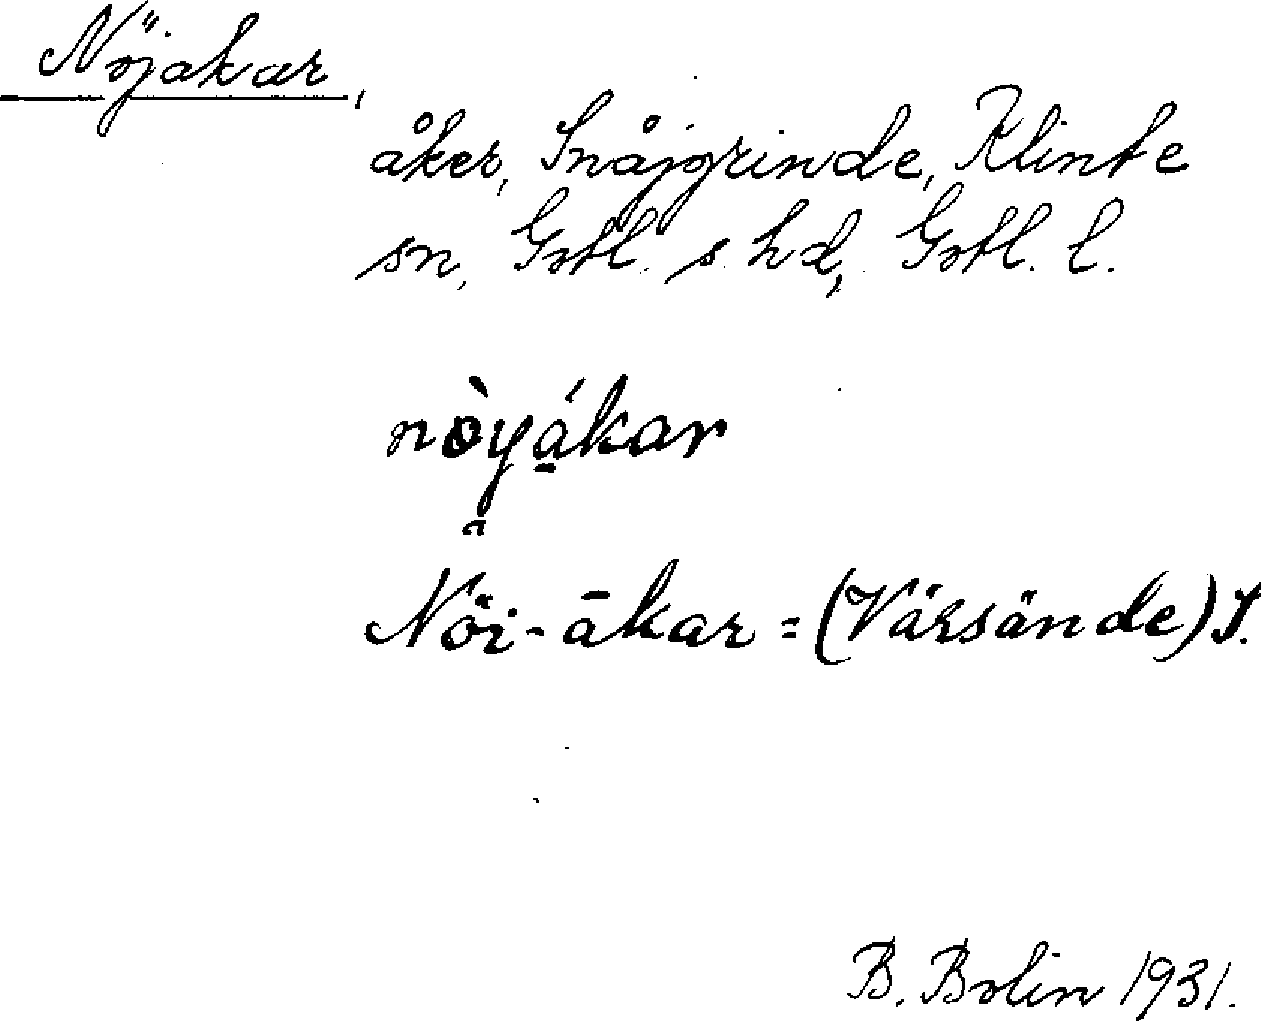 Nöjakar,
åker, Snåjgrinde, Klinte
sn, Gotl. s. hd, Gotl. l.
nòyákar
Nöi-ākar = (Värsände) S.
B. Bolin 1931.